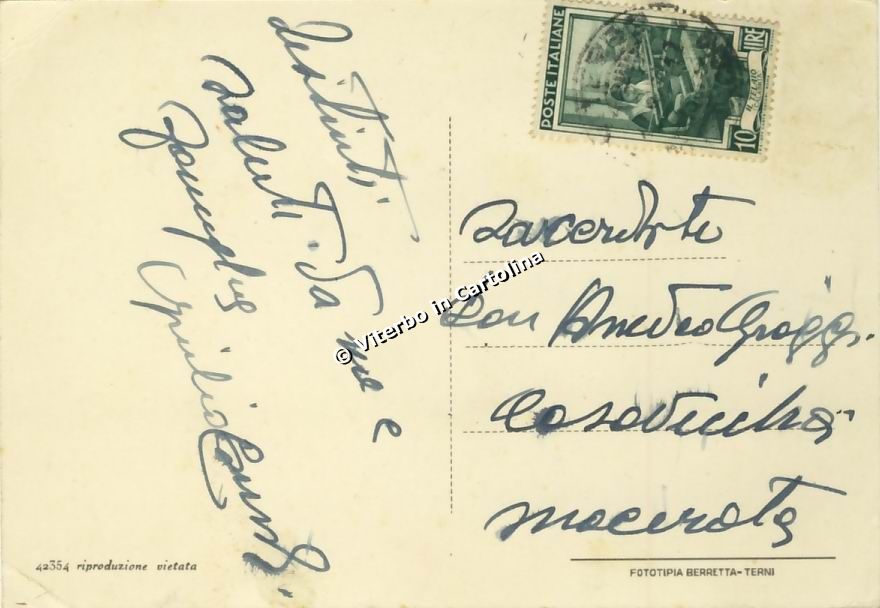 distinti
saluti da me e
famiglia
POSTE ITALIANE
LIRE
10
IL TELAIO
Sacerdote
Don Amedeo
Macerata
© Viterbo in Cartolina
42354 riproduzione vietata
FOTOTIPIA BERRETTA-TERNI